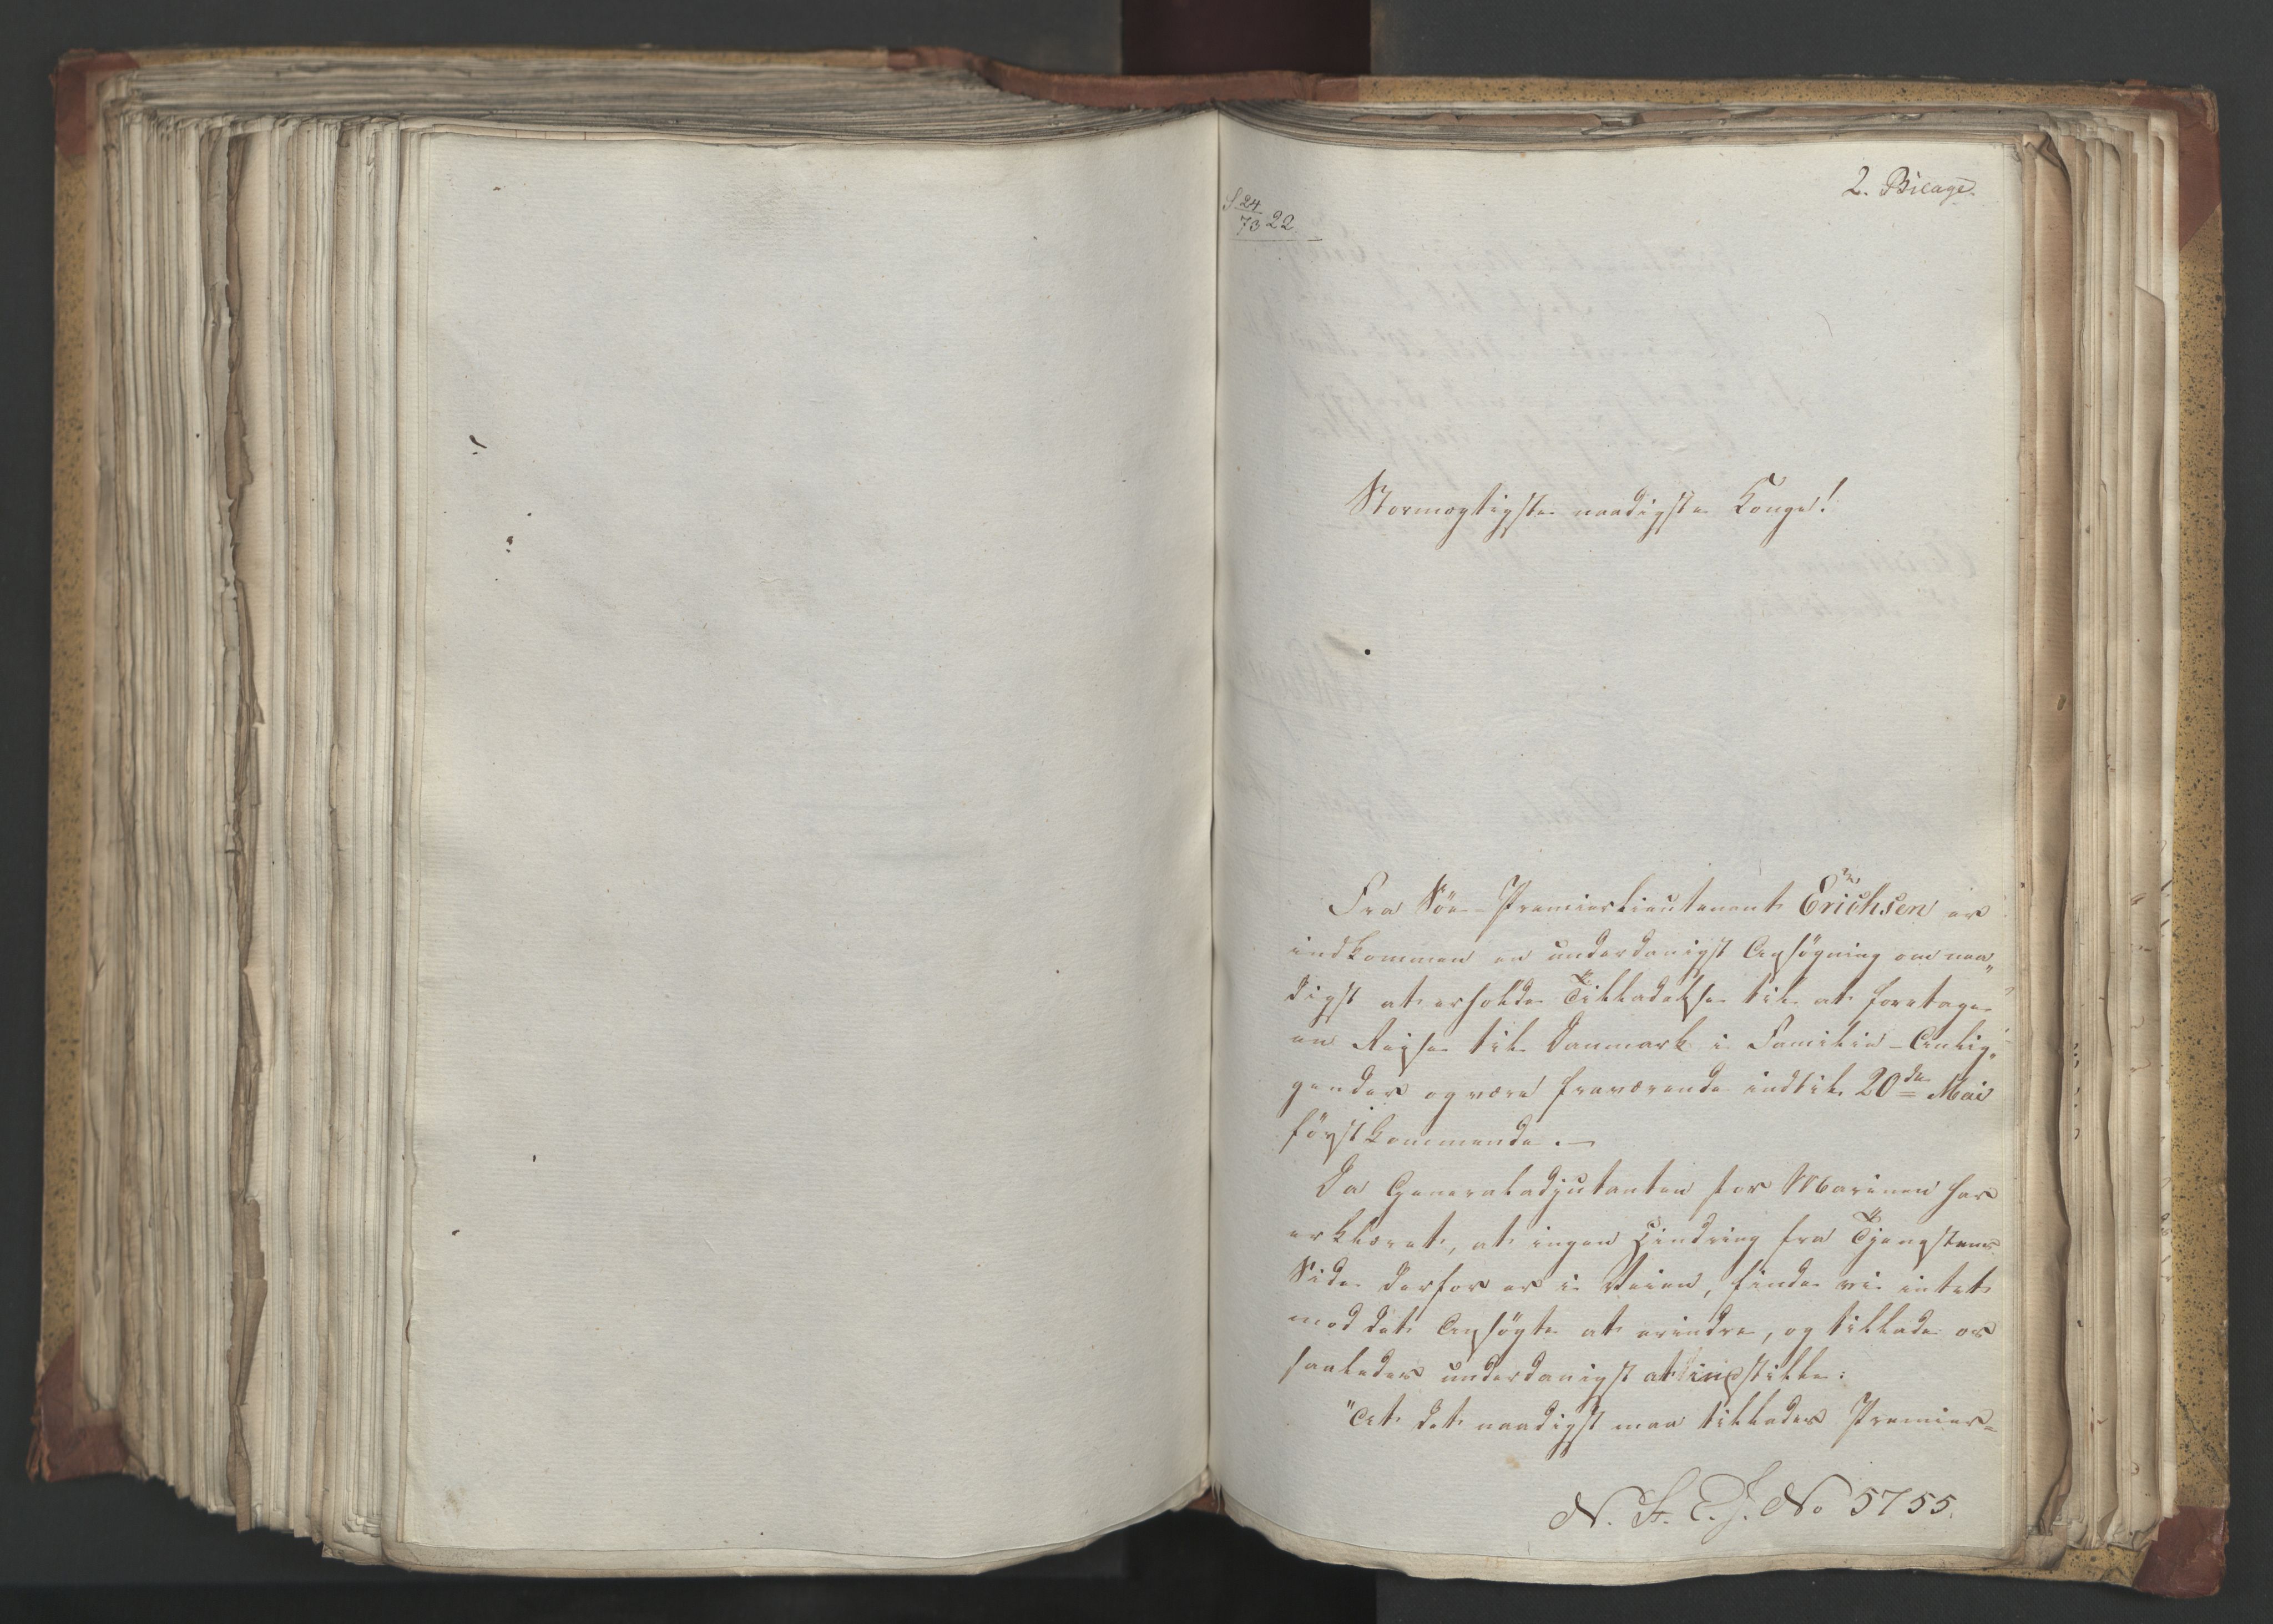 2. Bilage.
S 24/73 22
Stormægtigste naadigste Konge!
Fra Søe-Premierlieutenant Erichsen er
indkommen en underdanigst Ansøgning om naa„
digst at erholde Tilladelse til at foretage
en Reise til Danmark i Familie-Anlig„
gender og være fraværende indtil 20de Mai
førstkommende.—
Da Generaladjutanten for Marinen har
erklæret, at ingen Hindring fra Tjenestens
Side derfor er i Veien, finde vi intet
mod det Ansøgte at erindre, og tillade os
saaledes underdanigst at indstille:
"At det naadigst maa tillades Premier-
N. St. E. J. No 5755.